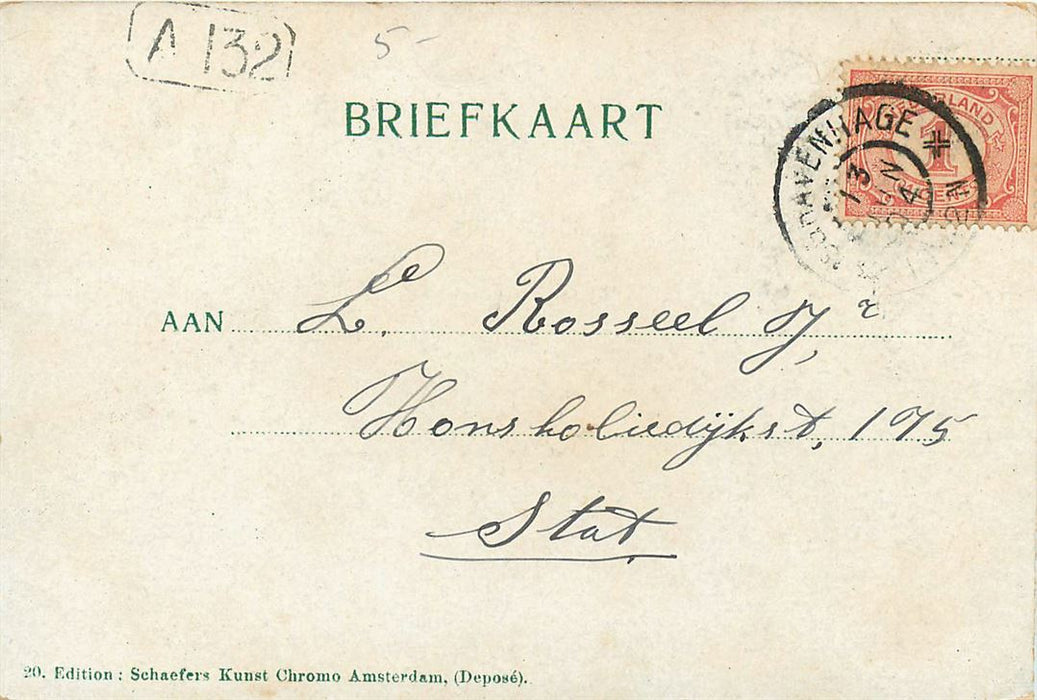 A 132
5-
BRIEFKAART
NEDERLAND
1
'SGRAVENHAGE
13
JUN
04
AAN L. Rosseel Jr
Honsholredijkst, 175
Stat
20. Edition: Schaefers Kunst Chromo Amsterdam, (Deposé).